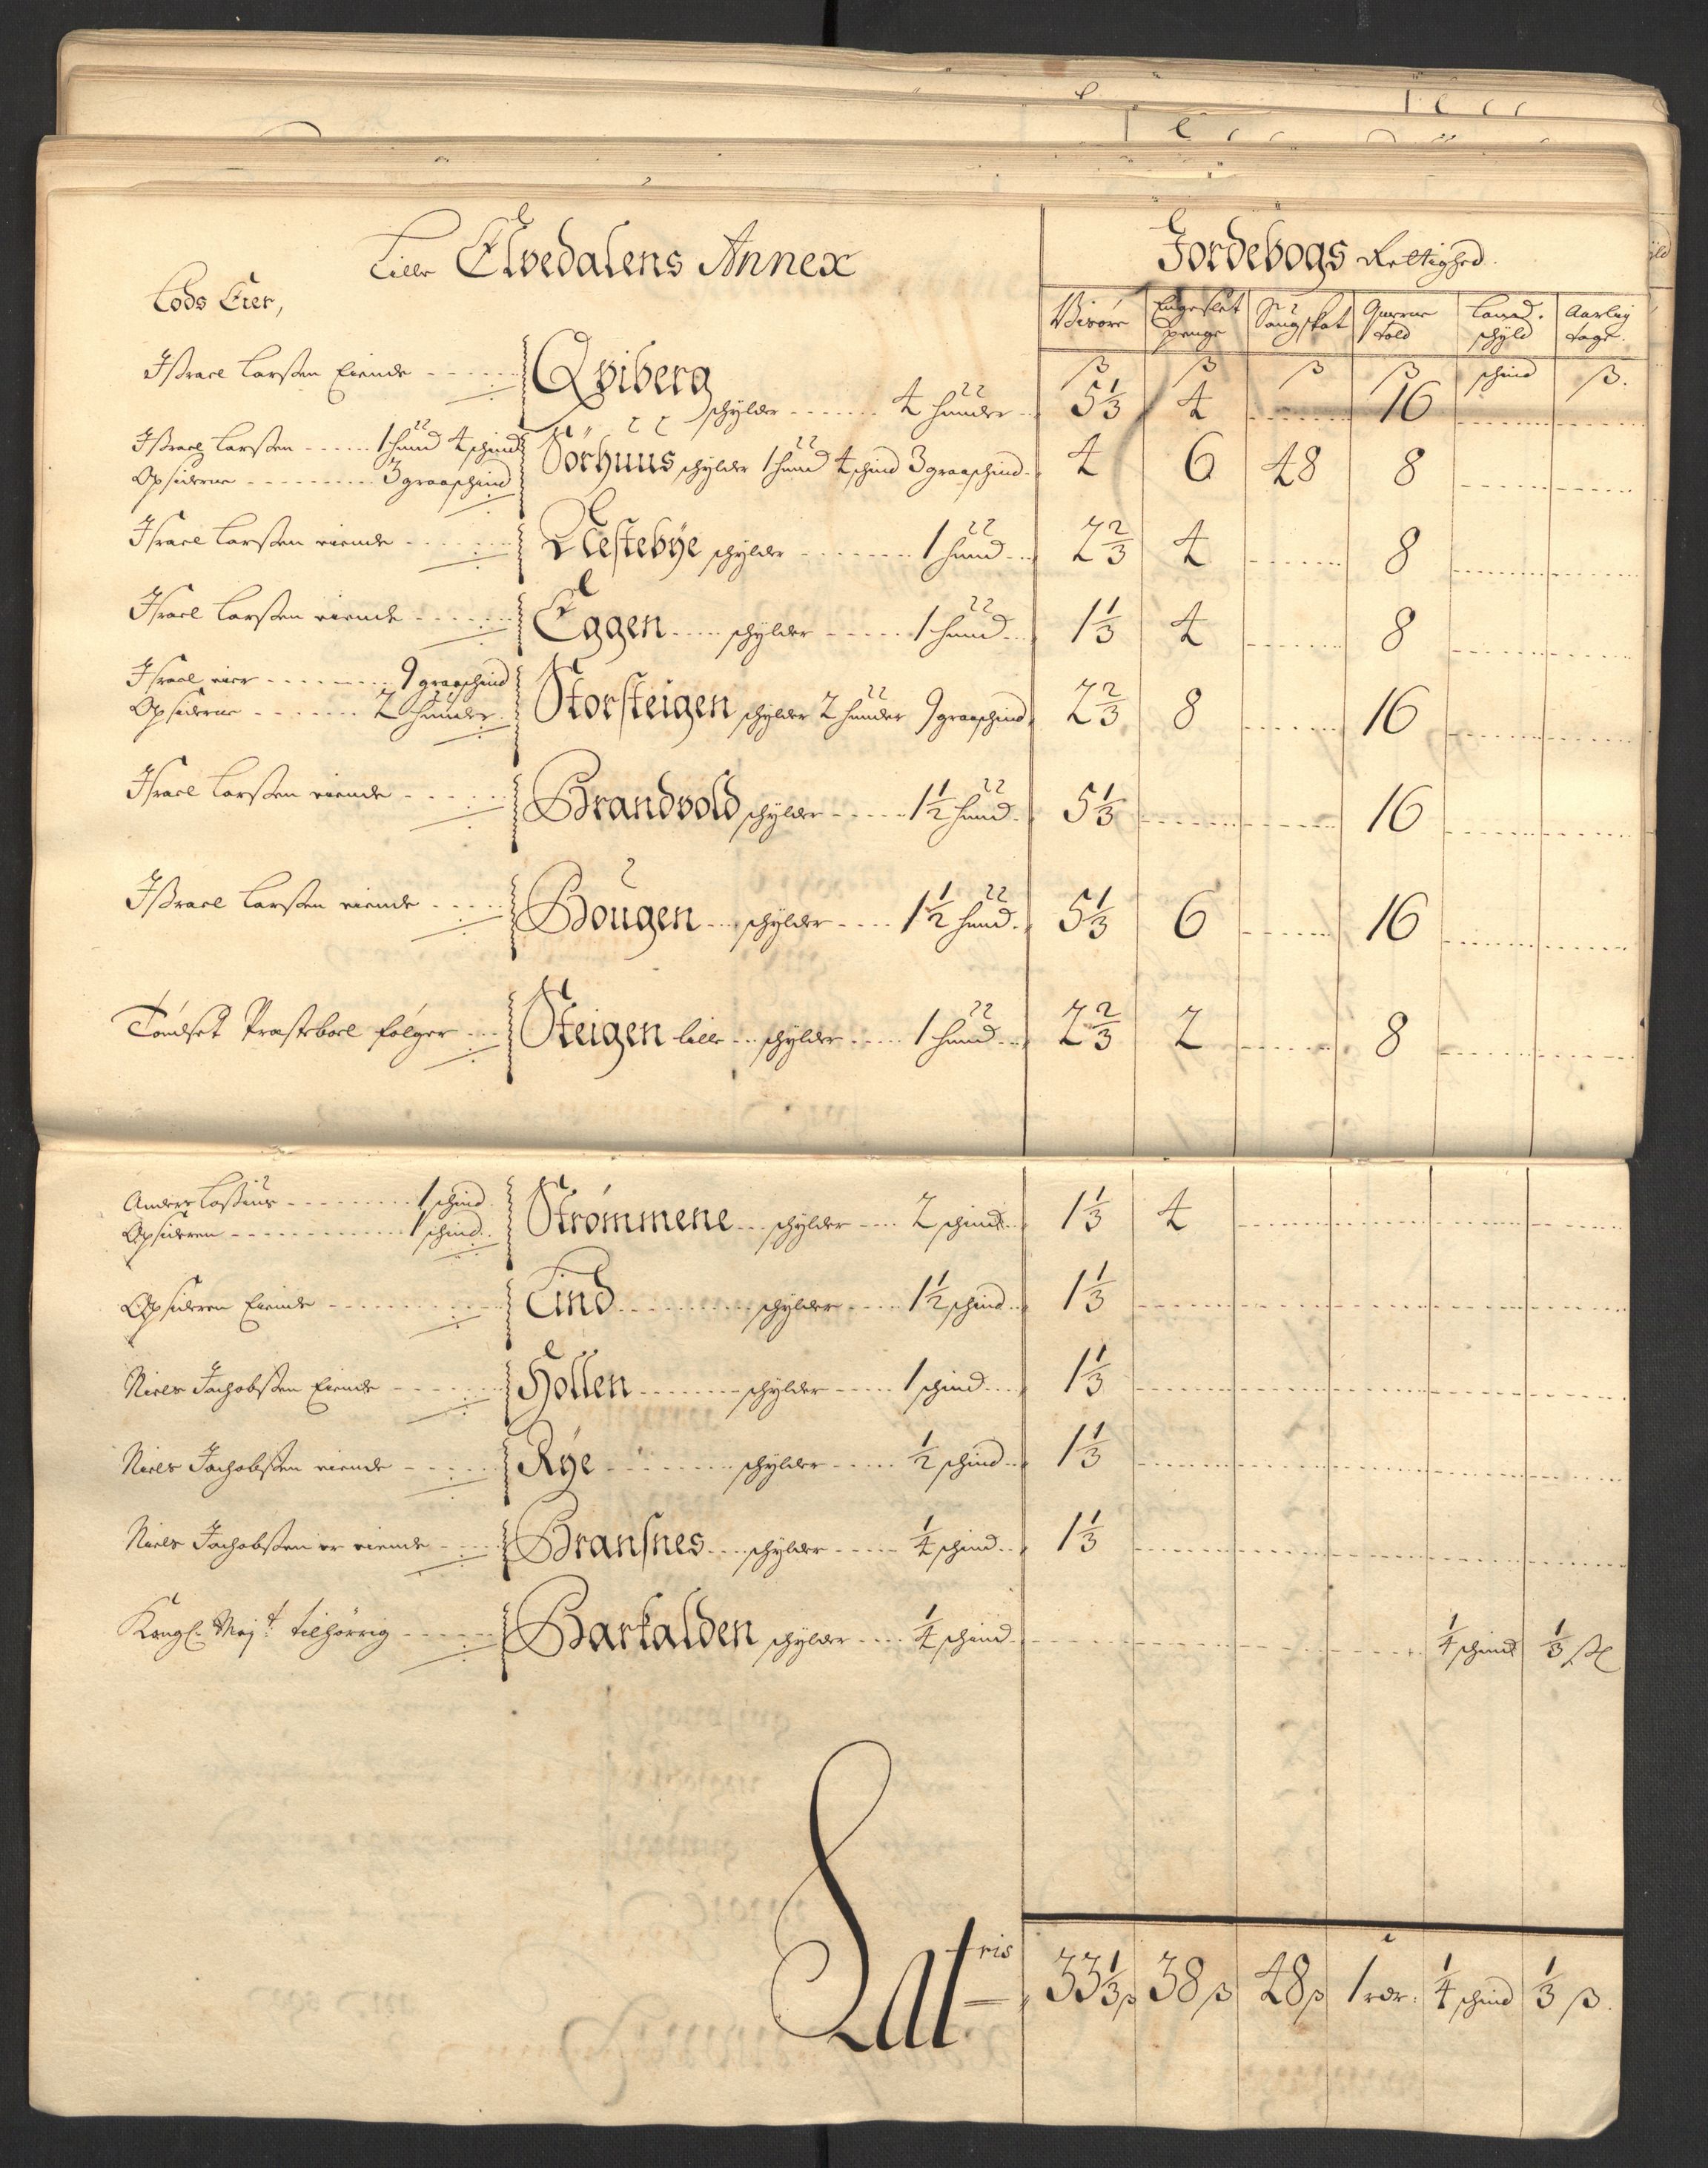 Lille Elvedalens Annex
Jordebogs Rettighed.
Lods Eier,
Visöre Engeslet penge Saugskat Quærne told Land. schyld Aarlig tage.
ß ß ß ß schind ß.
Jßrael Larßen Eiende Qviberg schylder 4 huuder 5 1/3 4 16
Jßrael Larßen 1 huud 4 schind
Opsiderne 3 graaschind
Sörhuus schylder 1 huud 4 schind 3 graaschind 4 6 48 8
Jsrael Larßen eiende Westebÿe schylder 1 huud 2 2/3 4 8
Jsrael Larßen eiende Eggen schylder 1 huud 1 1/3 4 8
Jsrael eier 9 graaschind
Opsiderne 2 huuder
Storsteigen schylder 2 huuder 9 graaschind 2 2/3 8 16
Jsrael Larßen eiende Brandvold schylder 1 1/2 huud 5 1/3 16
Jßrael Larßen eiende Hougen schylder 1 1/2 huud 5 1/3 6 16
Töndset Præsteboel følger Steigen lille schylder 1 huud 2 2/3 2 8
Anders Loßius 1 schind
Opsideren 1 schind
Strömmene schylder 2 schind 1 1/3 4
Opsideren Eiende Lind schylder 1 1/2 schind 1 1/3
Niels Jachobßen Eiende Hollen schylder 1 schind 1 1/3
Niels Jachobßen eiende Rÿe schylder 1/2 schind 1 1/3
Niels Jachobßen er eiende Bransnes schylder 1/4 schind 1 1/3
Kongl: Maj:t tilhørrig Barkalden schylder 1/4 schind 1/4 schind 1/3 ß
Lateris 33 1/3 ß 38 ß 48 ß 1 rdr: 1/4 schind 1/3 ß.